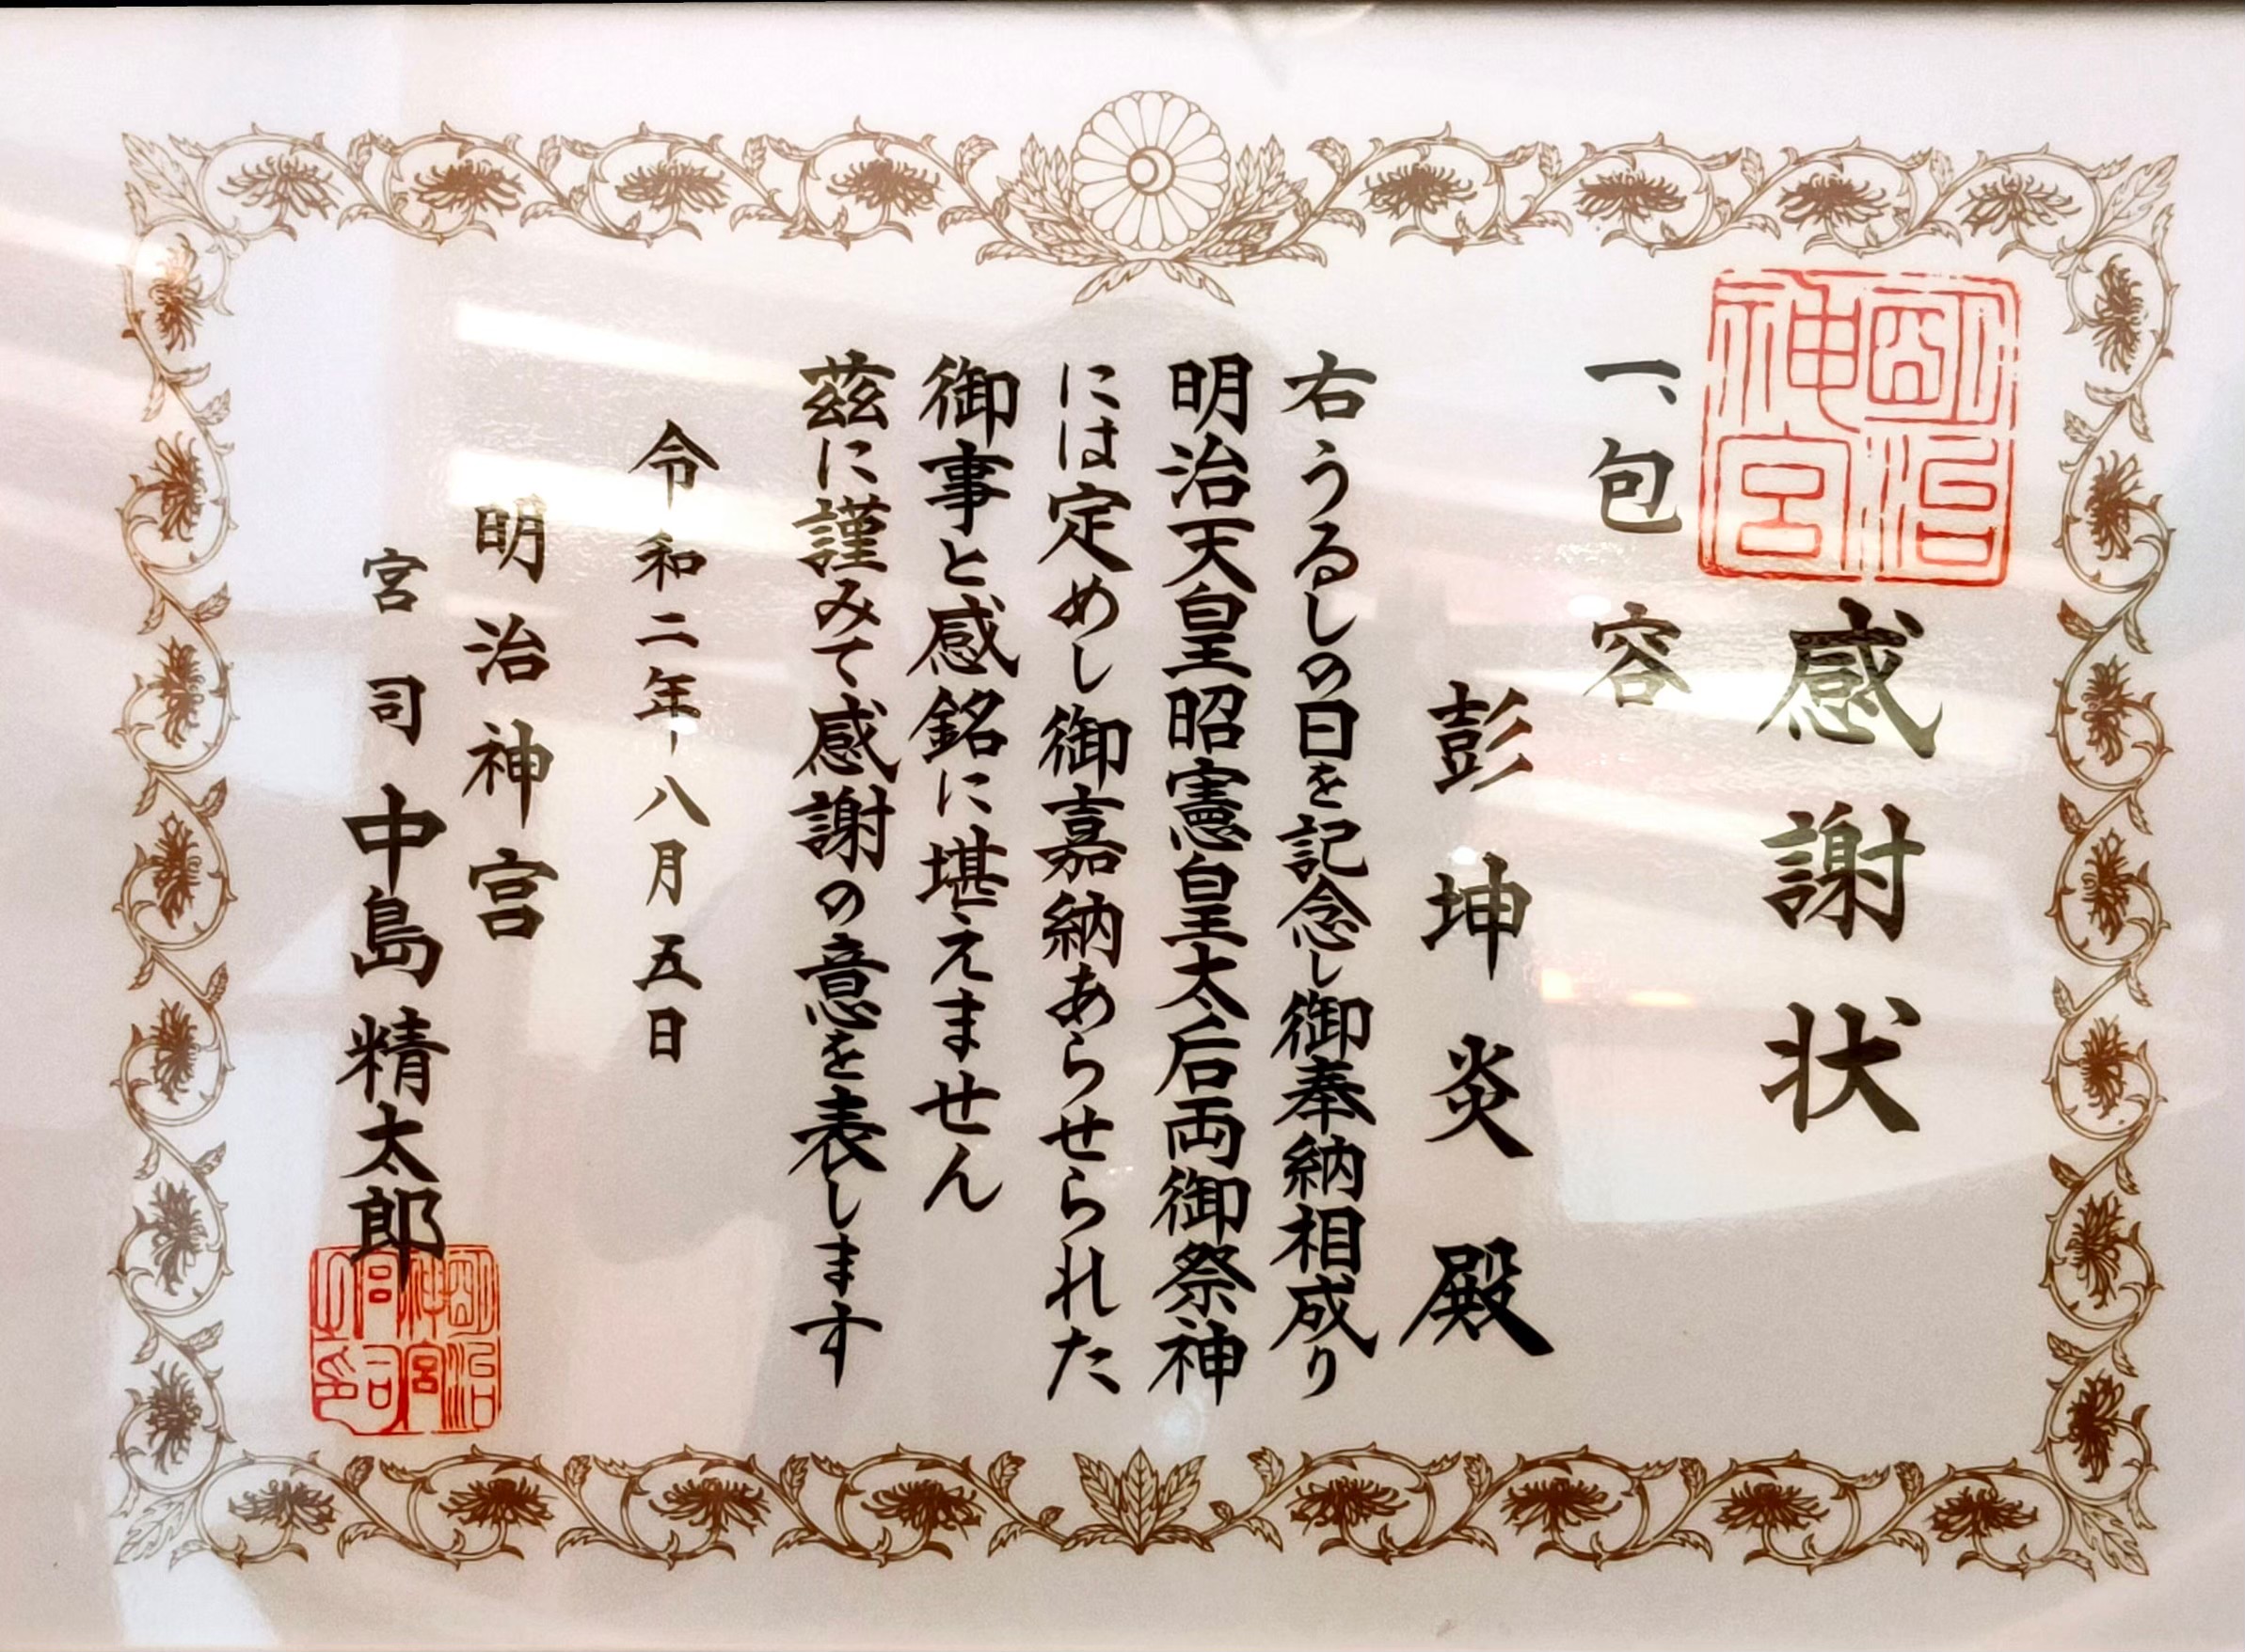 感謝状
明治神宮
一、包容
彭坤炎殿
右うるしの日を記念し御奉納相成り
明治天皇昭憲皇太后両御祭神
には定めし御嘉納あらせられた
御事と感銘に堪えません
茲に謹みて感謝の意を表します
令和二年八月五日
明治神宮
宮司中島精太郎
明治神宮宮司之印